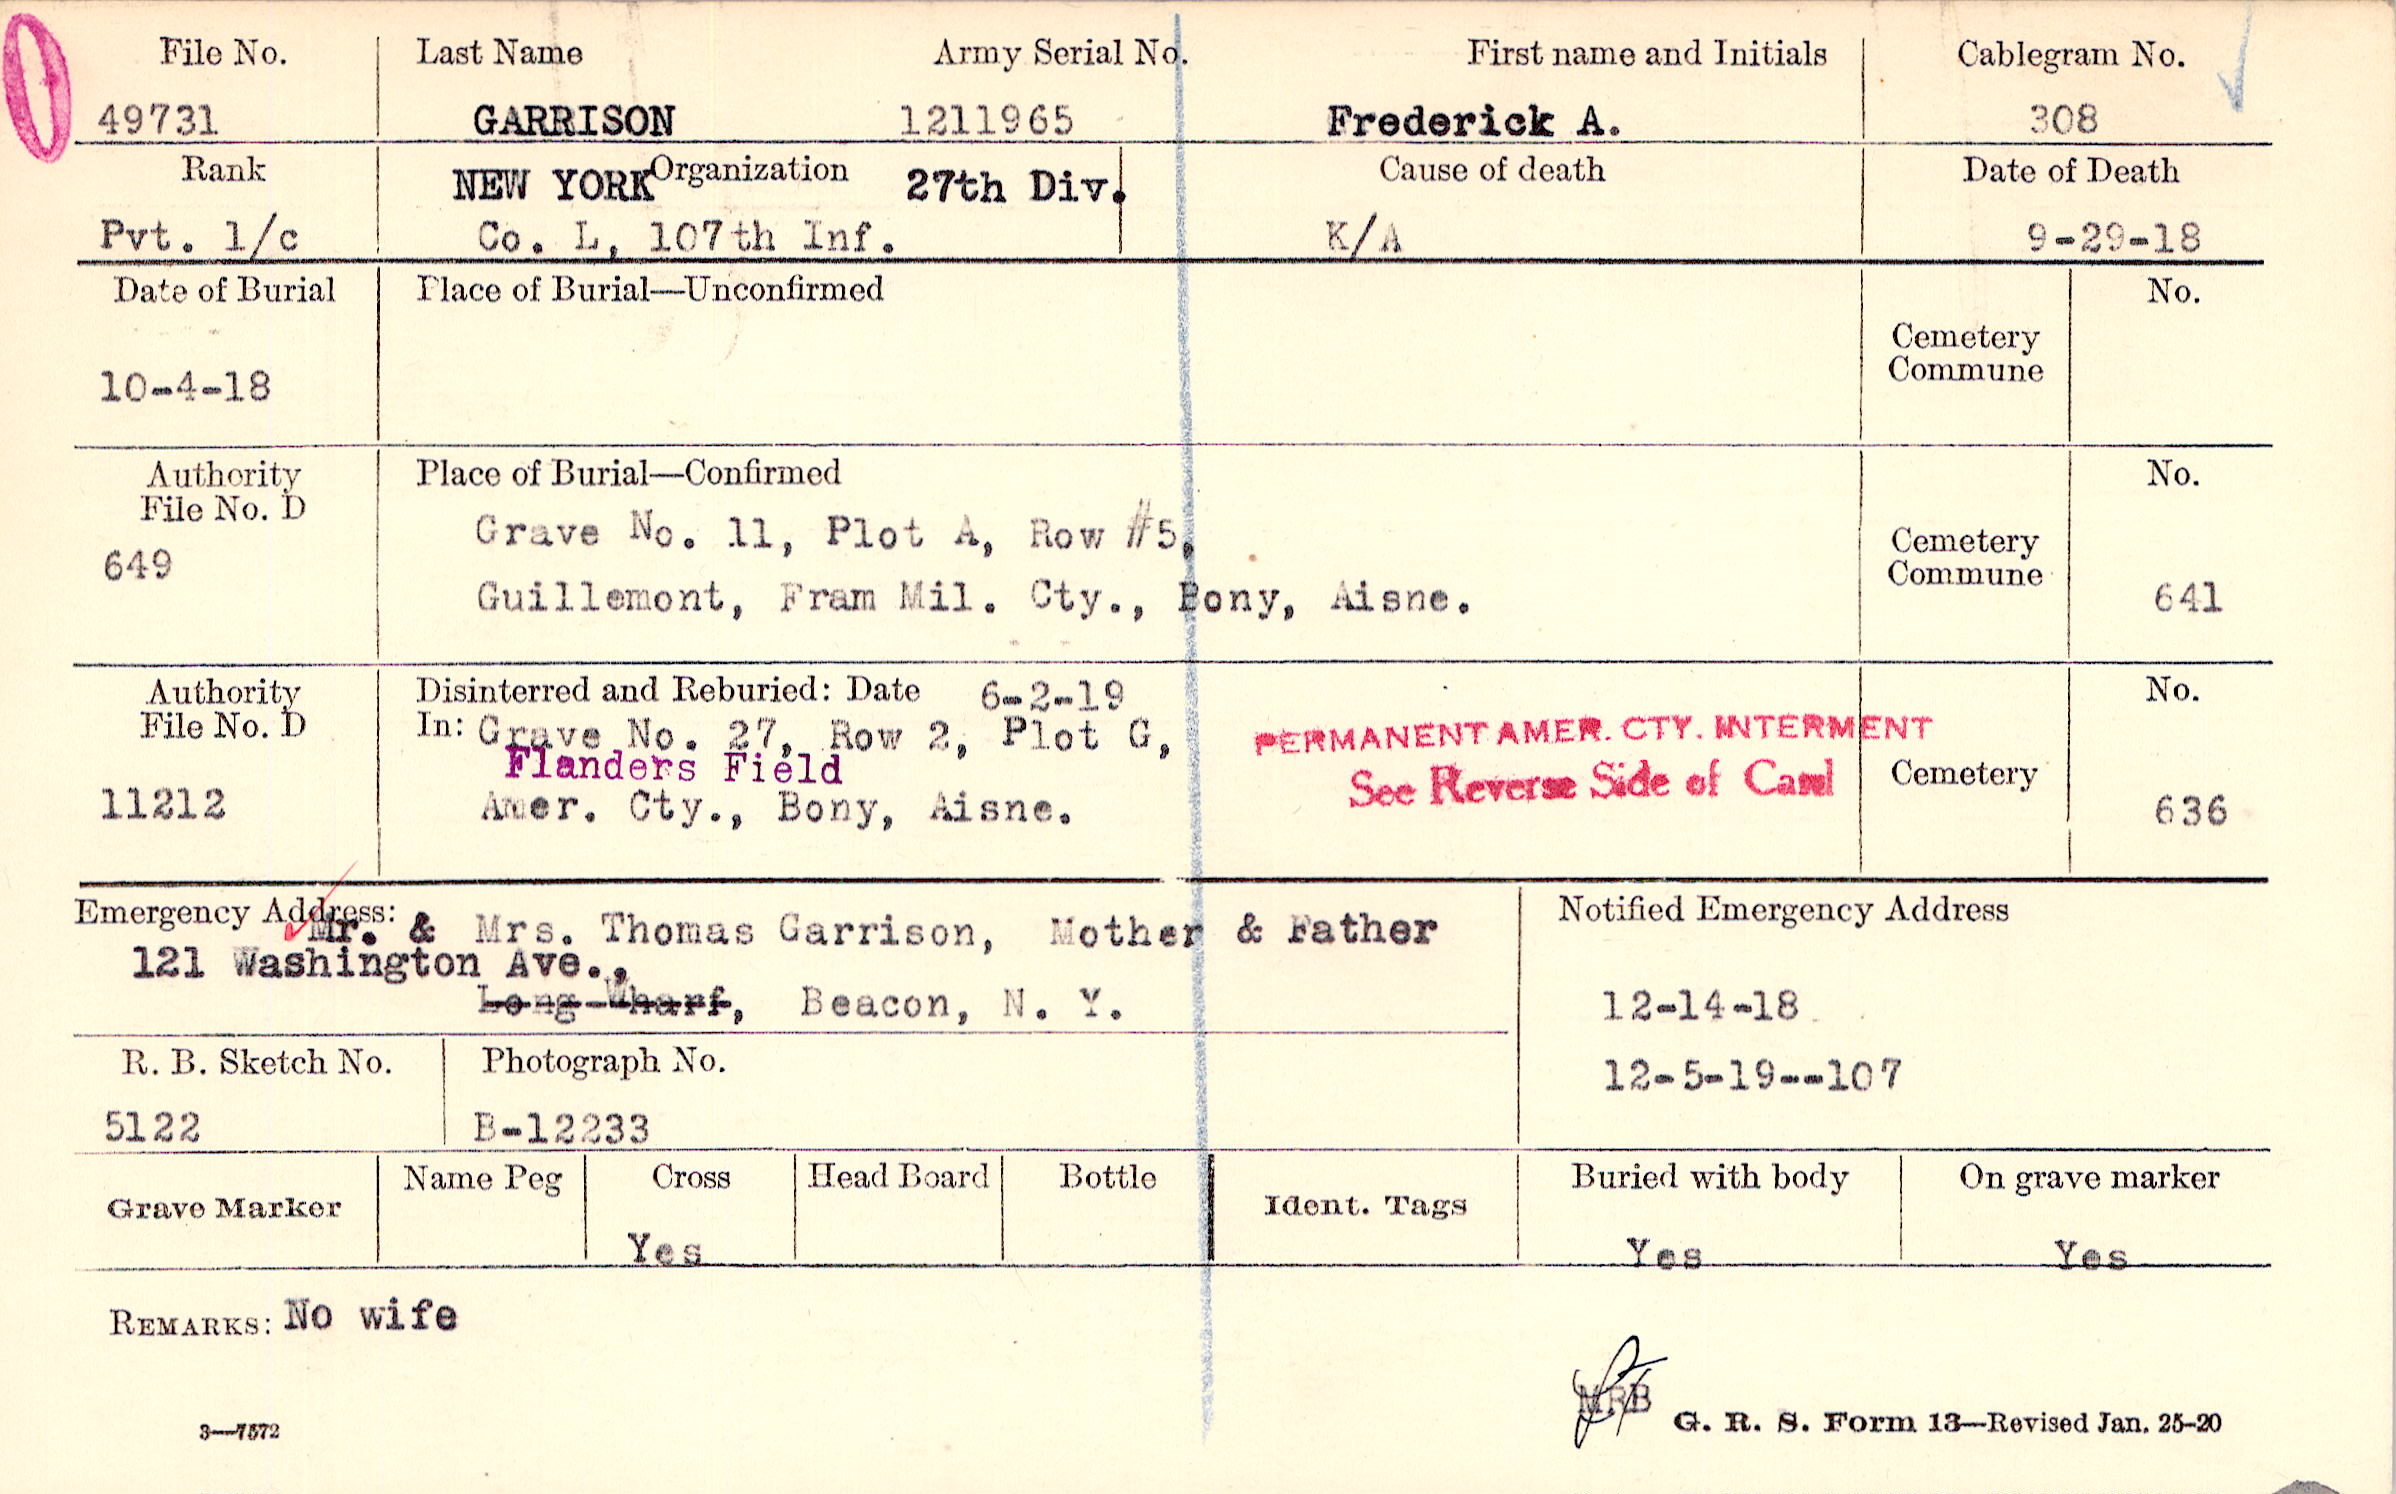 File No. Last Name Army Serial No. First name and Initials Cablegram No.
49731 GARRISON 1211965 Frederick A. 308
Rank Organization Cause of death Date of Death
NEW YORK 27th Div.
Pvt. 1/c Co. L, 107th Inf. K/A 9-29-18
Date of Burial Place of Burial—Unconfirmed No.
Cemetery
Commune
10-4-18
Authority Place of Burial—Confirmed No.
File No. D
649 Grave No. 11, Plot A, Row #5,
Cemetery
Commune
Guillemont, Fram Mil. Cty., Bony, Aisne. 641
Authority Disinterred and Reburied: Date 6-2-19 No.
File No. D In: Grave No. 27, Row 2, Plot G,
PERMANENT AMER. CTY. INTERMENT
Flanders Field
See Reverse Side of Card
Cemetery
11212 Amer. Cty., Bony, Aisne. 636
Emergency Address: Notified Emergency Address
Mr. & Mrs. Thomas Garrison, Mother & Father
121 Washington Ave.,
Long Wharf, Beacon, N. Y. 12-14-18
12-5-19--107
R. B. Sketch No. Photograph No.
5122 B-12233
Grave Marker Name Peg Cross Head Board Bottle Ident. Tags Buried with body On grave marker
Yes Yes Yes
REMARKS: No wife
MRB
3—7572 G. R. S. Form 13—Revised Jan. 25-20